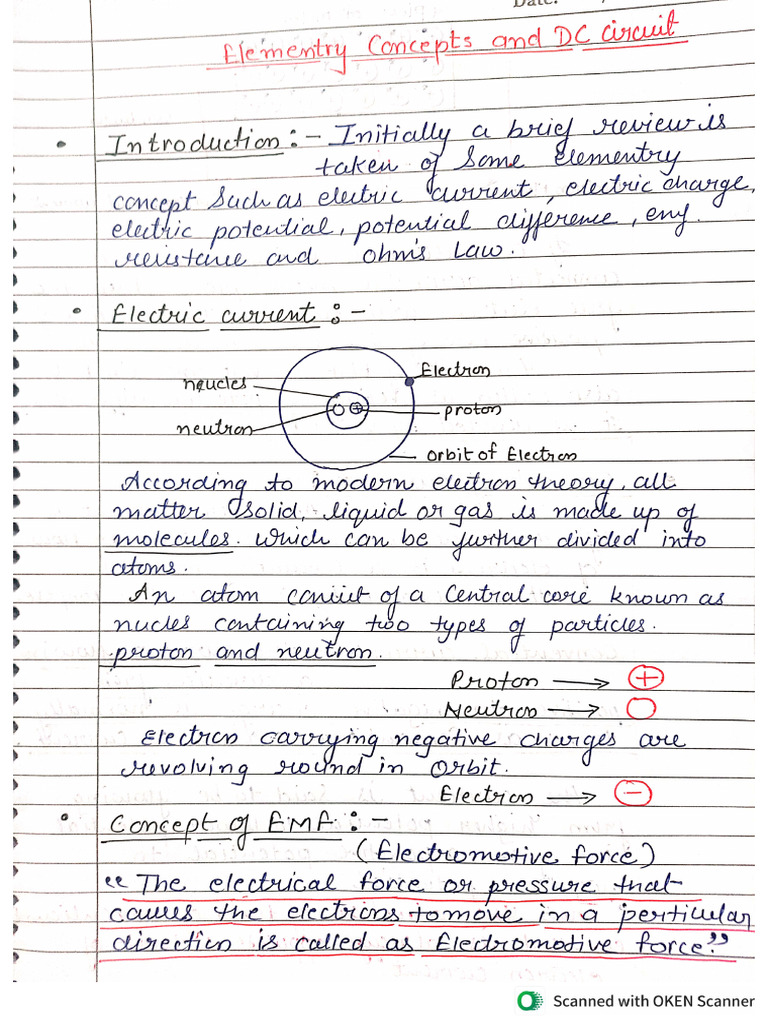 Date:
Elementry Concepts and DC circuit
• Introduction :- Initially a brief review is
taken of Some Elementry
concept Such as electric current, electric charge,
electric potential, potential difference, emf.
resistance and ohm's Law.
• Electric current :-
Electron
neucles
proton
neutron
orbit of Electron
According to modern electron theory, all
matter solid, liquid or gas is made up of
molecules. which can be further divided into
atoms.
An atom consist of a Central core known as
nucles containing two types of particles.
proton and neutron.
Proton → +
Neutron →
Electron carrying negative charges are
revolving round in Orbit.
Electron → -
• Concept of EMF :-
(Electromotive force)
“The electrical force or pressure that
causes the electrons to move in a perticular
direction is called as Electromotive force.”
Scanned with OKEN Scanner